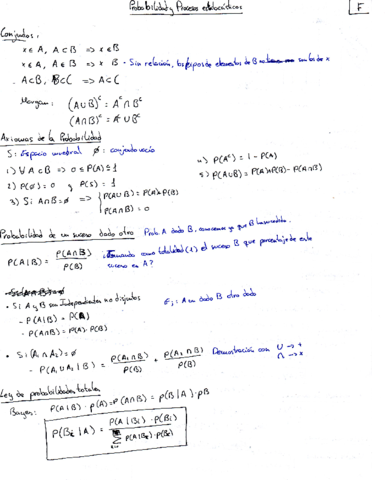 Probabilidad y Procesos estocásticos
F
Conjuntos:
x ∈ A, A ⊂ B ⇒ x ∈ B
x ∈ A, A ∈ B ⇒ x B · Sin relación, los de elementos de B son los de x
. A⊂B, B⊂C ⇒ A⊂C
Morgan: (A∪B)ᶜ = Aᶜ∩Bᶜ
(A∩B)ᶜ = A ∪Bᶜ
Axiomas de la Probabilidad
S: Espacio muestral ∅: conjunto vacío
1) ∀ A⊂B ⇒ 0≤P(A)≤1
2) P(∅)=0 y P(S)=1
3) Si A∩B=∅ ⇒ { P(A∪B)=P(A)+P(B)
P(A∩B)=0
4) P(Aᶜ) = 1 - P(A)
5) P(A∪B)= P(A)+P(B)- P(A∩B)
Probabilidad de un suceso dado otro Prob. A dado B, ya que B
P(A|B) = P(A∩B) / P(B) ¿Tomando como totalidad (1) el suceso B que porcentaje de este
suceso en A?
· Si A y B son Independientes no disjuntos
- P(A|B) = P(A)
- P(A∩B)=P(A)·P(B)
Ej: A un dado B otro dado
· Si (A₁∩A₂)=∅
- P(A₁∪A₂|B) = P(A₁∩B) / P(B) + P(A₂∩B) / P(B) Demostración con ∪→+
∩→x
Ley de probabilidades totales
Bayes: P(A|B)·P(A)=P(A∩B)=P(B|A)·PB
P(Bᵢ|A) = P(A|Bᵢ)·P(Bᵢ) / Σ P(A|Bₖ)·P(Bₖ)